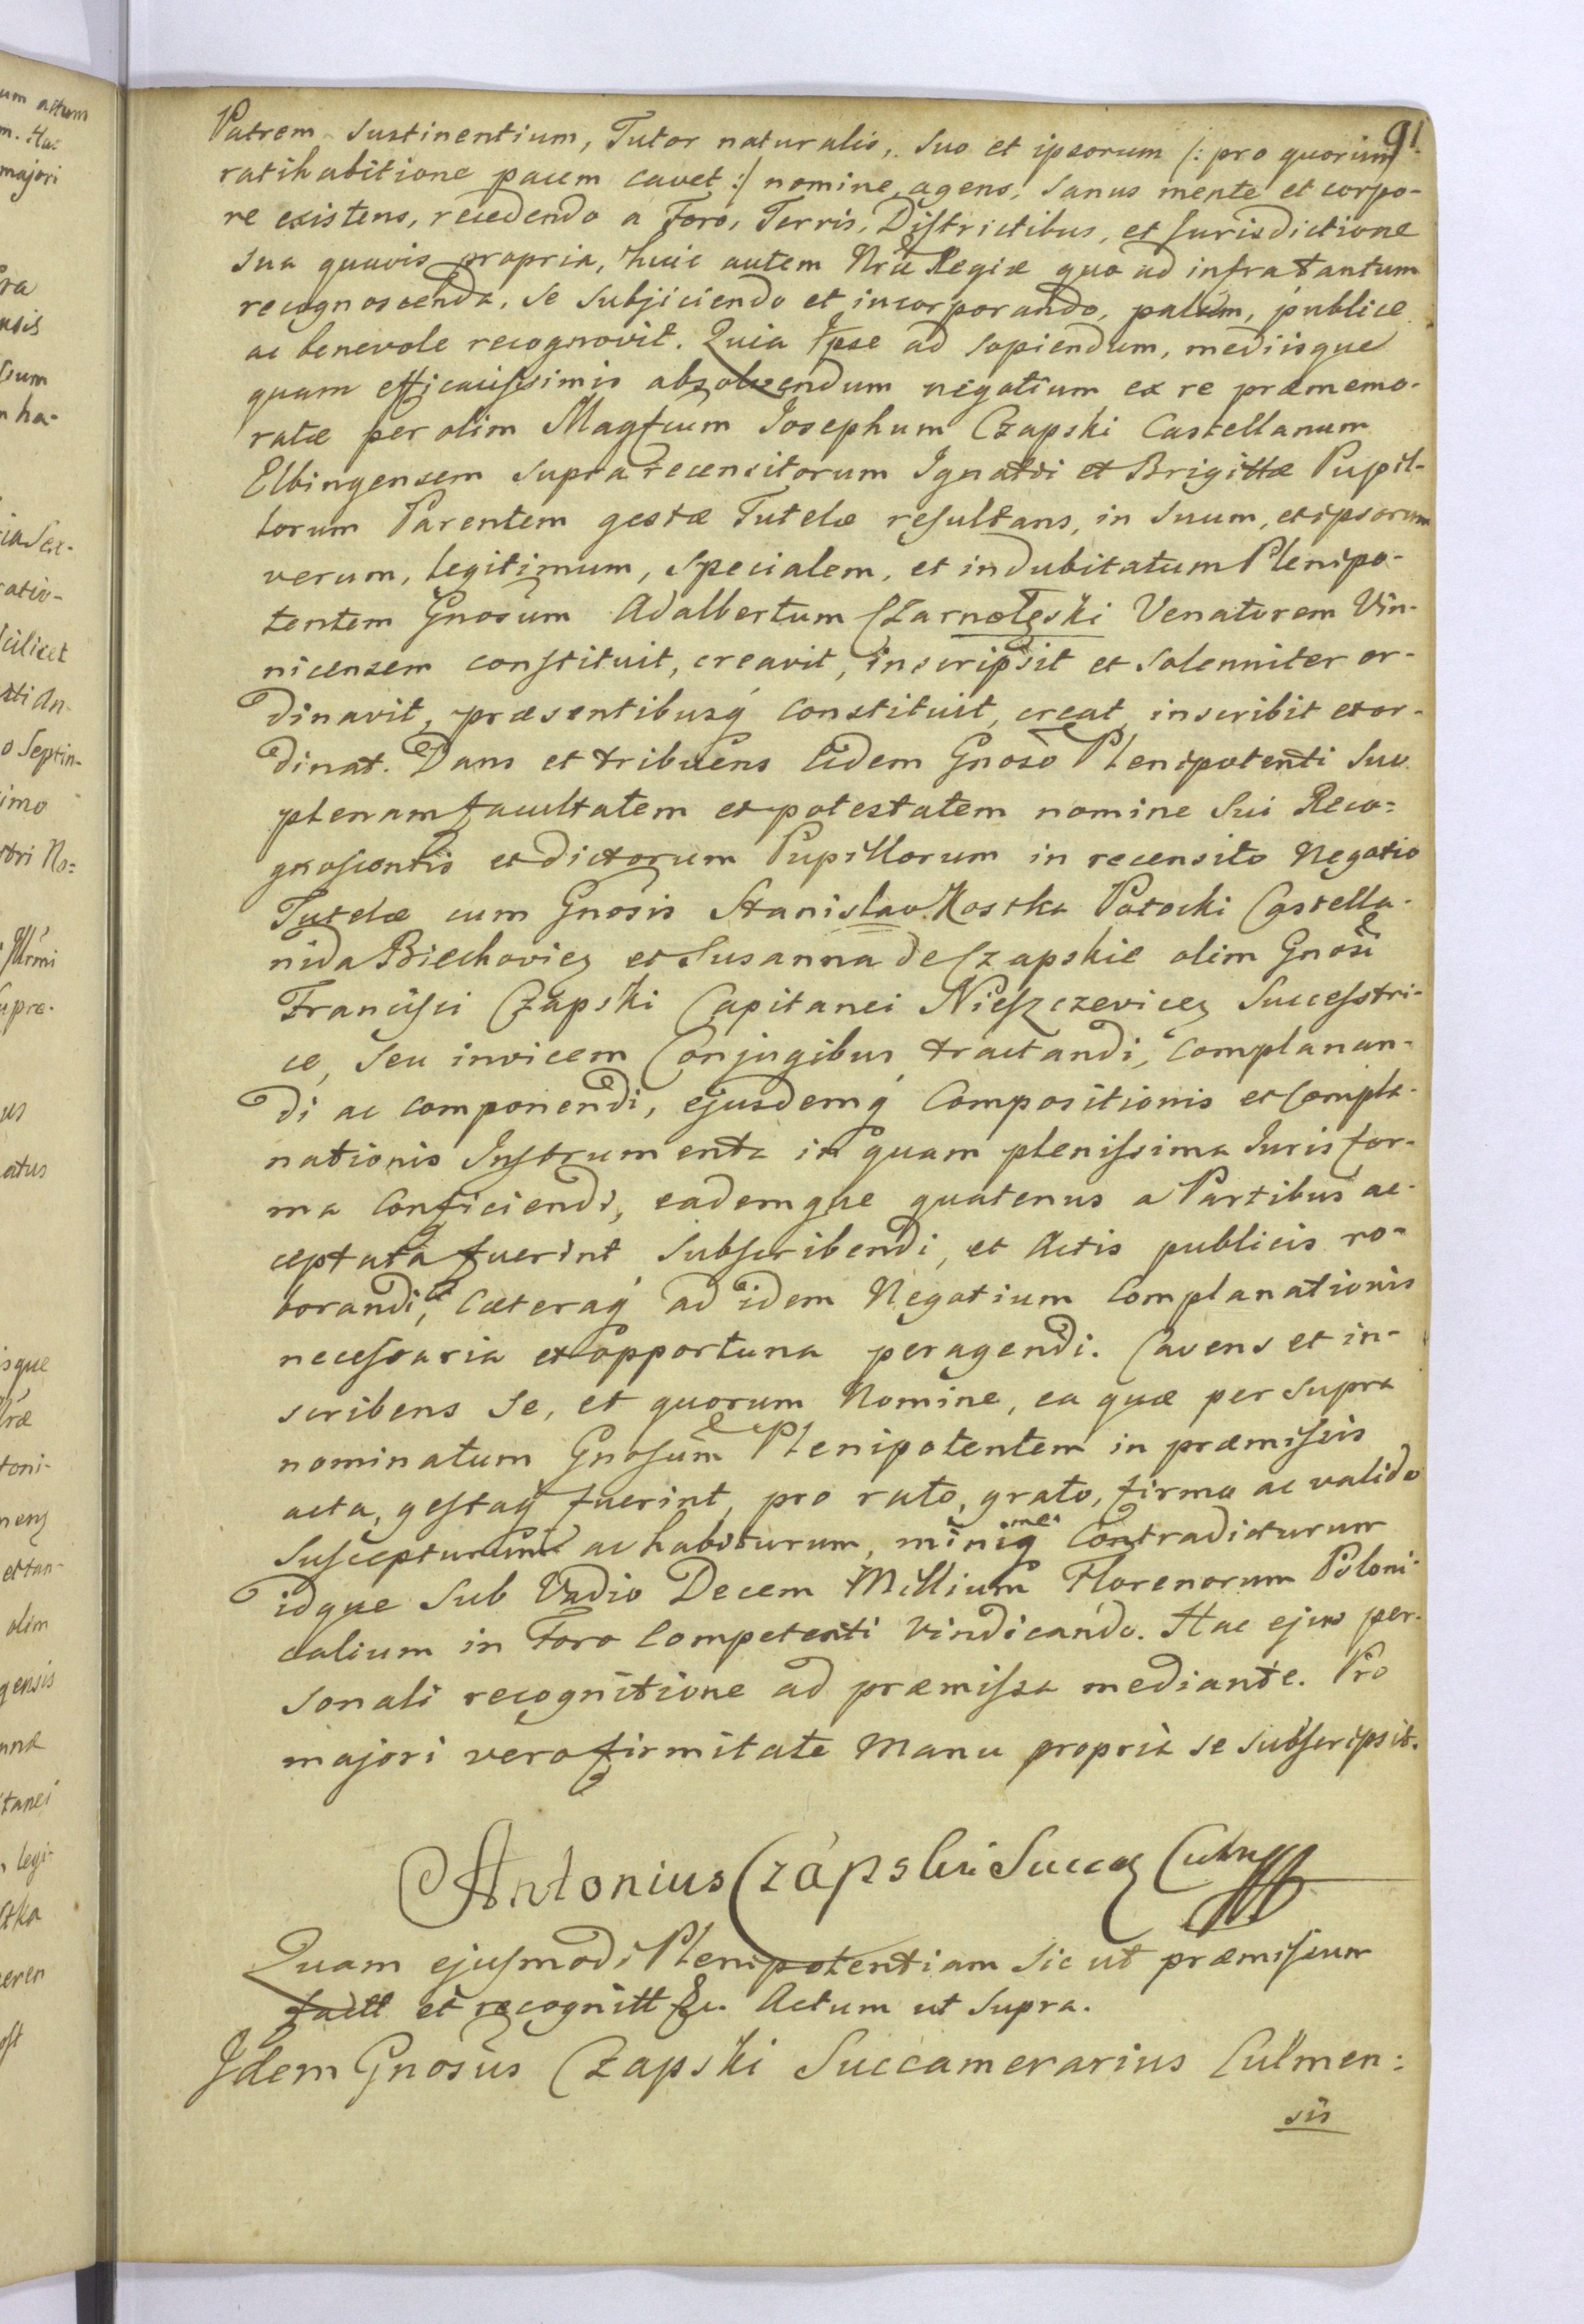 91.
Patrem sustinentium, Tutor naturalis, suo et ipsorum /: pro quorum
ratihabitione pacem cavet :/ nomine agens, sanus mente et corpo-
re existens, recedendo a Foro, Terris, Districtibus, et Jurisdictione
sua quavis propria, huic autem Nrae Regiae quo ad infra tantum
recognoscenda, se subjiciendo et incorporando, palam, publice
ac benevole recognovit. Quia Ipse ad sopiendum, mediisque
quam efficacissimis absolvendum negotium ex re praememo-
ratae per olim Magfcum Josephum Czapski Castellanum
Elbingensem supra recensitorum Ignatii et Brigittae Pupil-
lorum Parentem gestae Tutelae resultans, in suum, et ipsorum
verum, legitimum, specialem, et indubitatum Plenipo-
tentem Gnosum Adalbertum Czarnołęski Venatorem Vin-
nicensem constituit, creavit, inscripsit et solenniter or-
dinavit, praesentibusq constituit, creat, inscribit et or-
dinat. Dans et tribuens Eidem Gnoso Plenipotenti suo
plenam facultatem et potestatem nomine sui Reco-
gnoscentis et dictorum Pupillorum in recensito Negotio
Tutelae cum Gnosis Stanislao Kostka Potocki Castella-
nida Biechovien et Susanna de Czapskie olim Gnosi
Francisci Czapski Capitanei Nieszczevicen Successtri-
ce, seu invicem Conjugibus tractandi, complanan-
di ac componendi, ejusdemq Compositionis et Compla-
nationis Instrumenta in quam plenissima Juris for-
ma Conficiendi, eademque quatenus a Partibus ac-
ceptata fuerint subscribendi, et Actis publicis ro-
borandi, caeteraq ad idem Negotium Complanationis
necessaria et opportuna peragendi. Cavens et in-
scribens se, et quorum Nomine, ea quae per supra
nominatum Gnosum Plenipotentem in praemissis
acta, gestaq fuerint, pro rato, grato, firmo ac valido
suscepturum ac habiturum, Contradicturum
idque sub Vadio Decem Millium Florenorum Poloni-
calium in Foro Competenti vindicando. Hac ejus per-
sonali recognitione ad praemissa mediante. Pro
majori vero firmitate manu propria se subscripsit.
Antonius Czápski Succ
Quam ejusmodi Plenipotentiam sic ut praemissum
factt et recognitt &c. Actum ut supra.
Idem Gnosus Czapski Succamerarius Culmen:
sis